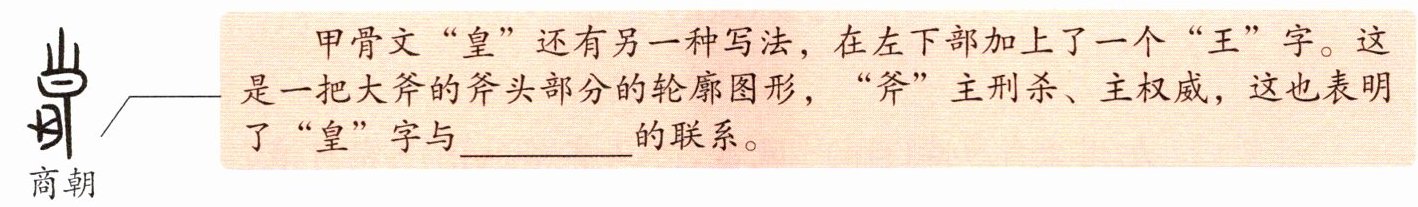 甲骨文“皇”还有另一种写法，在左下部加上了一个“王”字。这
是一把大斧的斧头部分的轮廓图形，“斧”主刑杀、主权威，这也表明
了“皇”字与__________的联系。
商朝